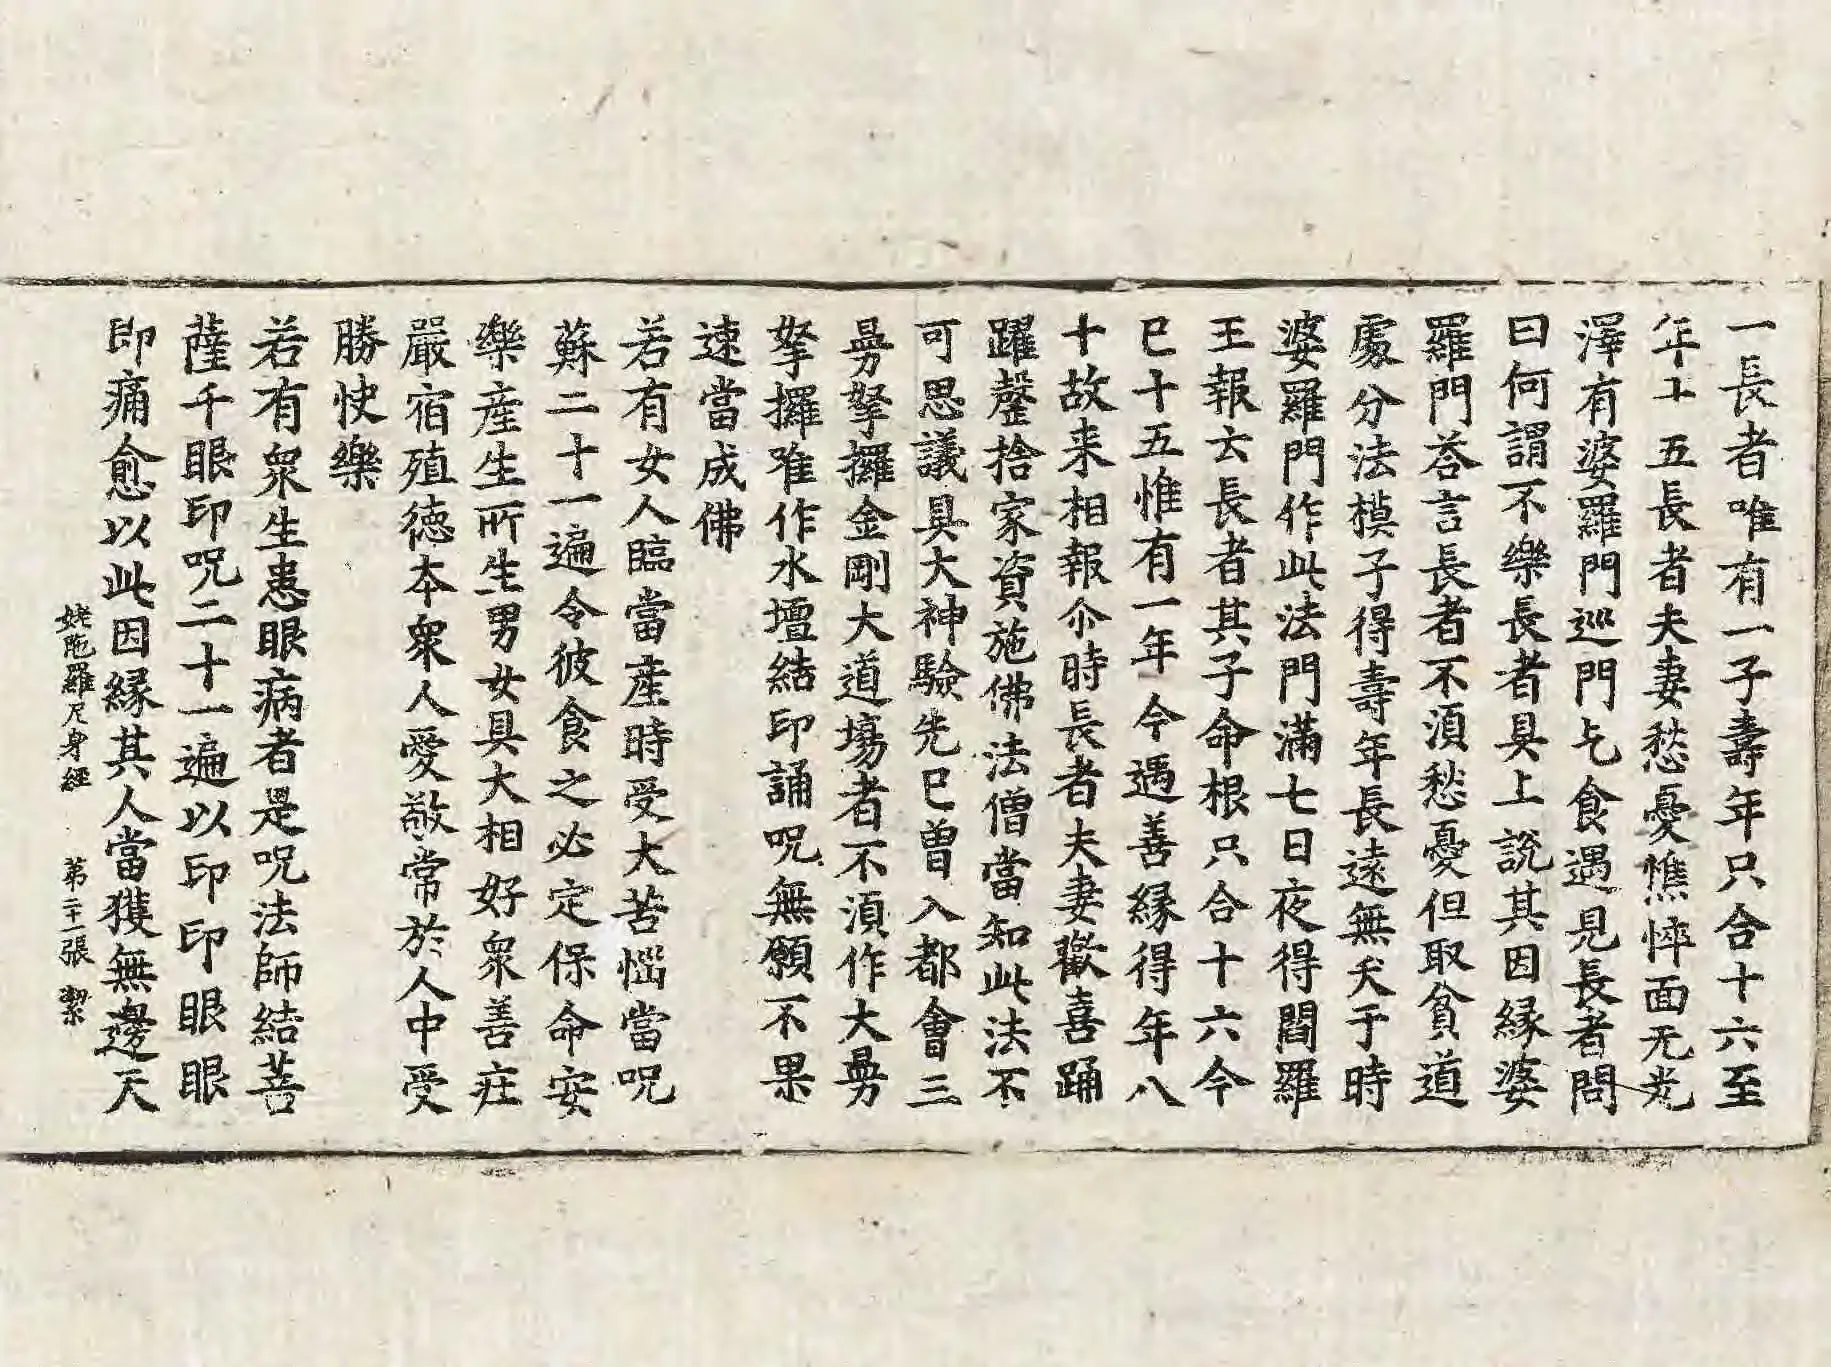 一長者唯有一子壽年只合十六至
年十五長者夫妻愁憂憔悴面无光
澤有婆羅門巡門乞食遇見長者問
曰何謂不樂長者具上說其因緣婆
羅門荅言長者不須愁憂但取貧道
處分法模子得壽年長遠無夭于時
婆羅門作此法門滿七日夜得閻羅
王報云長者其子命根只合十六今
巳十五惟有一年今遇善緣得年八
十故来相報尒時長者夫妻歡喜踊
躍罄捨家資施佛法僧當知此法不
可思議具大神驗先巳曽入都會三
曼拏攞金剛大道場者不須作大曼
拏攞唯作水壇結印誦呪無願不果
速當成佛
若有女人臨當產時受大苦惱當呪
蘇二十一遍令彼食之必定保命安
樂產生所生男女具大相好衆善庄
嚴宿殖德本衆人愛敬常於人中受
勝快樂
若有衆生患眼病者是呪法師結菩
薩千眼印呪二十一遍以印印眼眼
即痛愈以此因緣其人當獲無邊天
姥陁羅尼身經 第二十一張 潔